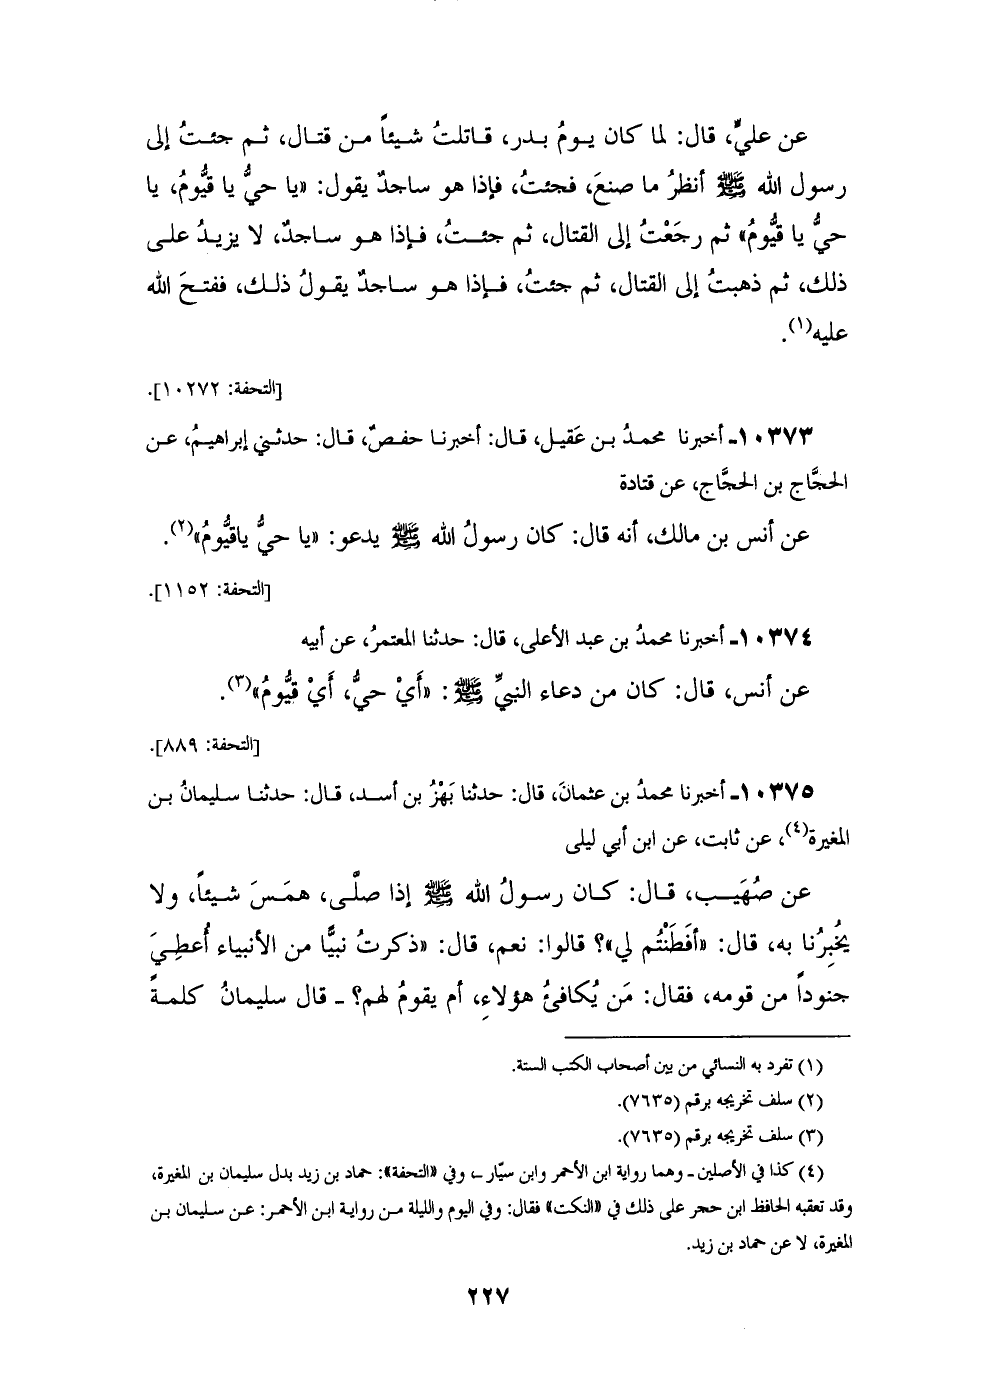 عن عليٍّ، قال: لما كان يومُ بدر، قاتلتُ شيئاً من قتال، ثم جئتُ إلى
رسول الله ﷺ أنظرُ ما صنعَ، فجئتُ، فإذا هو ساجدٌ يقول: «يا حيُّ يا قيُّومُ، يا
حيُّ يا قيُّومُ» ثم رجَعْتُ إلى القتال، ثم جئتُ، فإذا هو ساجدٌ، لا يزيدُ على
ذلك، ثم ذهبتُ إلى القتال، ثم جئتُ، فإذا هو ساجدٌ يقولُ ذلك، ففتحَ الله
عليه(١).
[التحفة: ١٠٢٧٢].
١٠٣٧٣ـ أخبرنا محمدُ بن عَقيل، قال: أخبرنا حفصٌ، قال: حدثني إبراهيمُ، عن
الحجَّاج بن الحجَّاج، عن قتادة
عن أنس بن مالك، أنه قال: كان رسولُ الله ﷺ يدعو: «يا حيُّ ياقيُّومُ»(٢).
[التحفة: ١١٥٢].
١٠٣٧٤ـ أخبرنا محمدُ بن عبد الأعلى، قال: حدثنا المعتمرُ، عن أبيه
عن أنس، قال: كان من دعاء النبيِّ ﷺ: «أَيْ حيُّ، أَيْ قيُّومُ»(٣).
[التحفة: ٨٨٩].
١٠٣٧٥ـ أخبرنا محمدُ بن عثمانَ، قال: حدثنا بَهْزُ بن أسد، قال: حدثنا سليمانُ بن
المغيرة(٤)، عن ثابت، عن ابن أبي ليلى
عن صُهَيب، قال: كان رسولُ الله ﷺ إذا صلَّى، همَسَ شيئاً، ولا
يُخبِرُنا به، قال: «أفَطَنْتُم لي»؟ قالوا: نعم، قال: «ذكرتُ نبيًّا من الأنبياء أُعطِيَ
جنوداً من قومه، فقال: مَن يُكافئُ هؤلاءِ، أم يقومُ لهم؟ ـ قال سليمانُ كلمةً
(١) تفرد به النسائي من بين أصحاب الكتب الستة.
(٢) سلف تخريجه برقم (٧٦٣٥).
(٣) سلف تخريجه برقم (٧٦٣٥).
(٤) كذا في الأصلين ـ وهما رواية ابن الأحمر وابن سيّار ـ، وفي «التحفة»: حماد بن زيد بدل سليمان بن المغيرة،
وقد تعقبه الحافظ ابن حجر على ذلك في «النكت» فقال: وفي اليوم والليلة من رواية ابن الأحمر: عن سليمان بن
المغيرة، لا عن حماد بن زيد.
٢٢٧